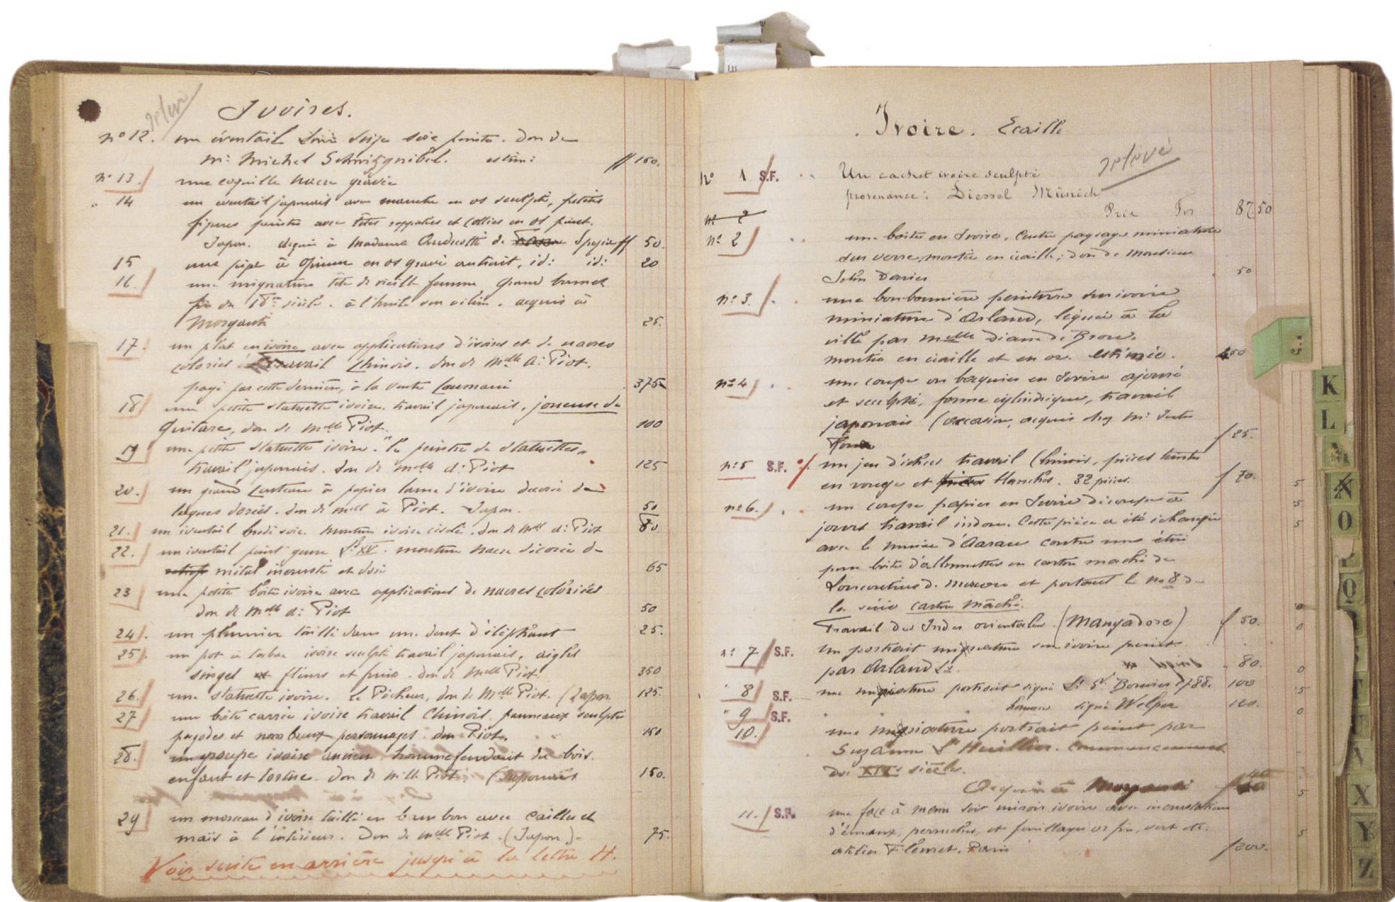 relevé
Ivoires.
n° 12. un éventail soie peinte. don de
Mr. Michel estimé ff 150.
n° 13. une coquille nacre gravée
14 un éventail japonais avec manche en os sculpté, petites
figures peintes avec têtes rapportées et collées en os peint.
Japon. acquis à Madame de ff 50.
15 une pipe à opium en os gravé id: id: 20
16. une miniature tête de vieille femme grand bonnet
fin du 18me siècle. à l'huile sur vélin. acquis à
Morganti 25.
17. un plat en ivoire avec applications d'ivoires et de nacres
coloriés travail Chinois. don de Melle A: Piot.
payé par cette dernière, à la vente 375
18 une petite statuette ivoire travail japonais, joueuse de
guitare, don de Melle Piot. 100
19 une petite statuette ivoire "le peintre de statuettes"
travail japonais. don de Melle A: Piot 125
20. un grand couteau à papier lame d'ivoire décorée de
laques dorées. don de Melle A Piot. Japon. 50
21. un éventail soie. monture ivoire ciselé. don de Melle A: Piot 80.
22. un éventail peint genre Ls XV. monture nacre décorée de
métal incrusté et doré 65
23 une petite boîte ivoire avec applications de nacres coloriées
don de Melle A: Piot 50
24. un plumier taillé dans une dent d'éléphant 25.
25. un pot à tabac ivoire sculpté travail japonais, aigles
singes et fleurs et fruits. don de Melle Piot. 350
26. une statuette ivoire. Le Pêcheur, don de Melle Piot. (Japon 125.
27 une boîte carrée ivoire travail Chinois, panneaux sculptés
pagodes et nombreux personnages. don Piot. 150
28. un groupe ivoire ancien homme fendant du bois.
enfant et tortue. don de Melle Piot (Japonais 150.
29 un morceau d'ivoire taillé en bambou avec cailles et
maïs à l'intérieur. Don de Melle Piot. (Japon)- 75.
Voir suite en arrière jusqu'à la lettre H.
Ivoire. Ecaille
relevé
N° 1 S.F. Un cachet ivoire sculpté
provenance: Diessel Münich
Prix Frs 87 50
n° 2
n° 2 une boîte en Ivoire, Centre paysage miniature
sous verre, montée en écaille; don de Monsieur
John Darier 50
n° 3. une bonbonnière peinture sur ivoire
miniature d'Arlaud, léguée à la
ville par Melle Diane de
montée en écaille et en or. estimée. 450
n° 4 une coupe ou baguier en Ivoire ajouré
et sculpté, forme cylindrique, travail
japonais (occasion, acquis chez Mr
f 25.
n° 5 S.F. un jeu d'échecs travail Chinois. pièces teintes
en rouge et blanches. 32 pièces. f 70.
n° 6. un coupe papier en Ivoire découpé à
jours travail indou. Cette pièce a été échangée
avec le musée d'Aarau contre une étui
pour boîte d'allumettes en carton mâché de
et portant le no 8 de
la série carton mâché.
Travail des Indes orientales (Mangadore) f 50.
n° 7 S.F. Un portrait miniature sur ivoire peint
par Arlaud Ls. 80.
8 S.F. une miniature portrait signé Bouvier 1788. 100
9 S.F. signé Welper 120.
10. une miniature portrait peint par
Suzanne L'Huillier. commencement
du XIXe siècle.
Acquis à Morganti
11. S.F. une face à main soit miroir ivoire avec incrustations
d'émaux, et feuillages or fin, vert etc.
atelier Paris f 200.
K
L
M
N
O
Q
V
X
Y
Z